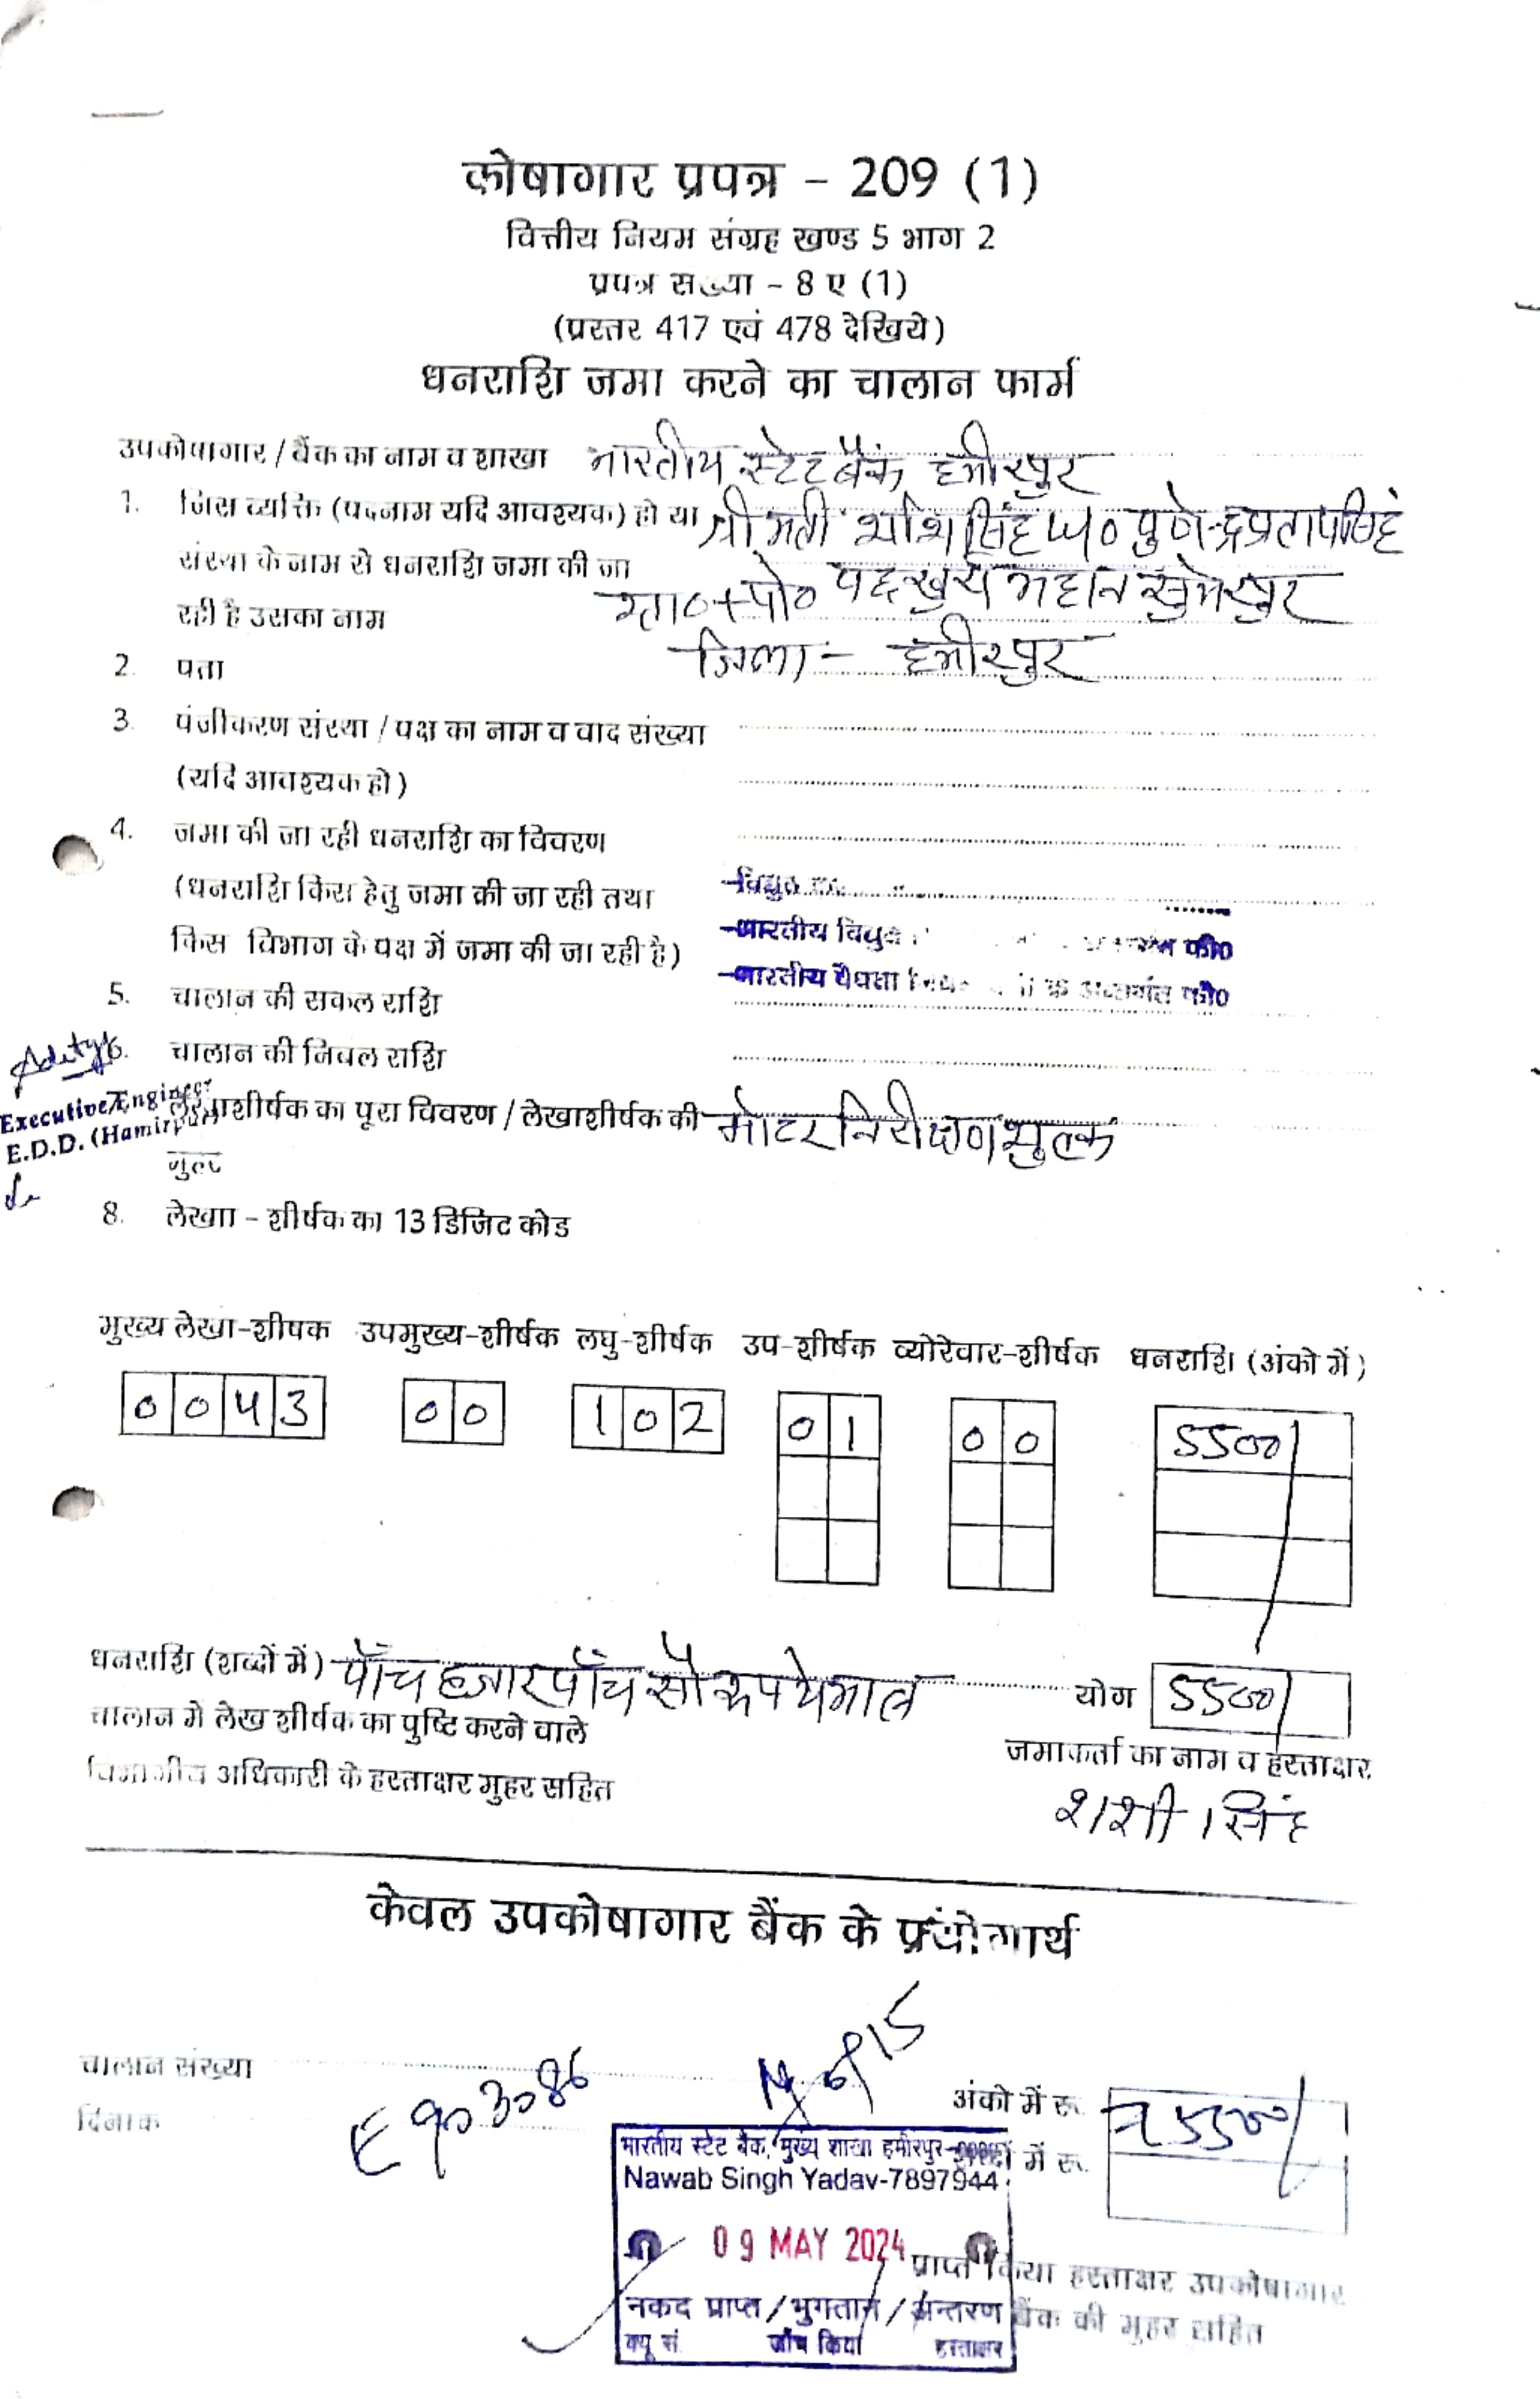 कोषागार प्रपत्र - 209 (1)
वित्तीय नियम संग्रह खण्ड 5 भाग 2
प्रपत्र संख्या - 8 ए (1)
(प्रस्तर 417 एवं 478 देखिये)
धनराशि जमा करने का चालान फार्म
उपकोषागार / बैंक का नाम व शाखा भारतीय स्टेट बैंक हमीरपुर
1. जिस व्यक्ति (पदनाम यदि आवश्यक) हो या श्रीमती शशि सिंह W/o पुणेन्द्र प्रताप सिंह
संस्था के नाम से धनराशि जमा की जा
रही है उसका नाम ग्रा०+पो० महान सुमेरपुर
2. पता जिला - हमीरपुर
3. पंजीकरण संस्था / पक्ष का नाम व वाद संख्या
(यदि आवश्यक हो)
4. जमा की जा रही धनराशि का विवरण
(धनराशि किस हेतु जमा की जा रही तथा विद्युत
किस विभाग के पक्ष में जमा की जा रही है) भारतीय विद्युत फी०
भारतीय वैधता के अन्तर्गत फी०
5. चालान की सकल राशि
6. चालान की निवल राशि
Aditya
Executive Engineer
E.D.D. (Hamirpur)
7. लेखाशीर्षक का पूरा विवरण / लेखाशीर्षक की मोटर निरीक्षण शुल्क
8. लेखाा - शीर्षक का 13 डिजिट कोड
मुख्य लेखा-शीषक उपमुख्य-शीर्षक लघु-शीर्षक उप-शीर्षक व्योरेवार-शीर्षक धनराशि (अंको में)
0043 00 102 01 00 5500/
धनराशि (शब्दों में) पाँच हजार पाँच सौ रूपये मात्र योग 5500/
चालान मे लेख शीर्षक का पुष्टि करने वाले
विभागीय अधिकारी के हस्ताक्षर मुहर सहित
जमाकर्ता का नाम व हस्ताक्षर
शशी सिंह
केवल उपकोषागार बैंक के प्रयोगार्थ
चालान संख्या
दिनाक
E903086
अंको में रू. 5500/
शब्दों में रू.
भारतीय स्टेट बैंक, मुख्य शाखा हमीरपुर
Nawab Singh Yadav-7897944
09 MAY 2024
नकद प्राप्त / भुगतान / अन्तरण
क्यू सं. जाँच किया हस्ताक्षर
प्राप्त किया हस्ताक्षर उपकोषागार
बैंक की मुहर सहित